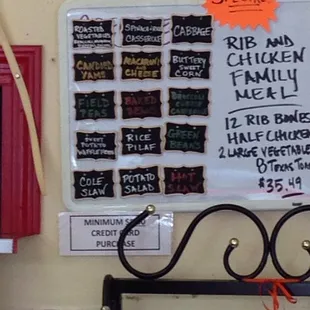 SPECIAL
ROASTED
VEGETABLES
SPINACH
CASSEROLE
CABBAGE
CANDIED
YAMS
MACARONI
AND
CHEESE
BUTTERY
SWEET
CORN
FIELD
PEAS
BAKED
BEANS
BROCCOLI
CHEESE
CASSEROLE
SWEET
POTATO
WAFFLE FRIES
RICE
PILAF
GREEN
BEANS
COLE
SLAW
POTATO
SALAD
HOT
SLAW
RIB AND
CHICKEN
FAMILY
MEAL
12 RIB BONES
HALF CHICKEN
2 LARGE VEGETABLE
8 TEXAS TOAST
$35.49
MINIMUM
CREDIT CARD
PURCHASE